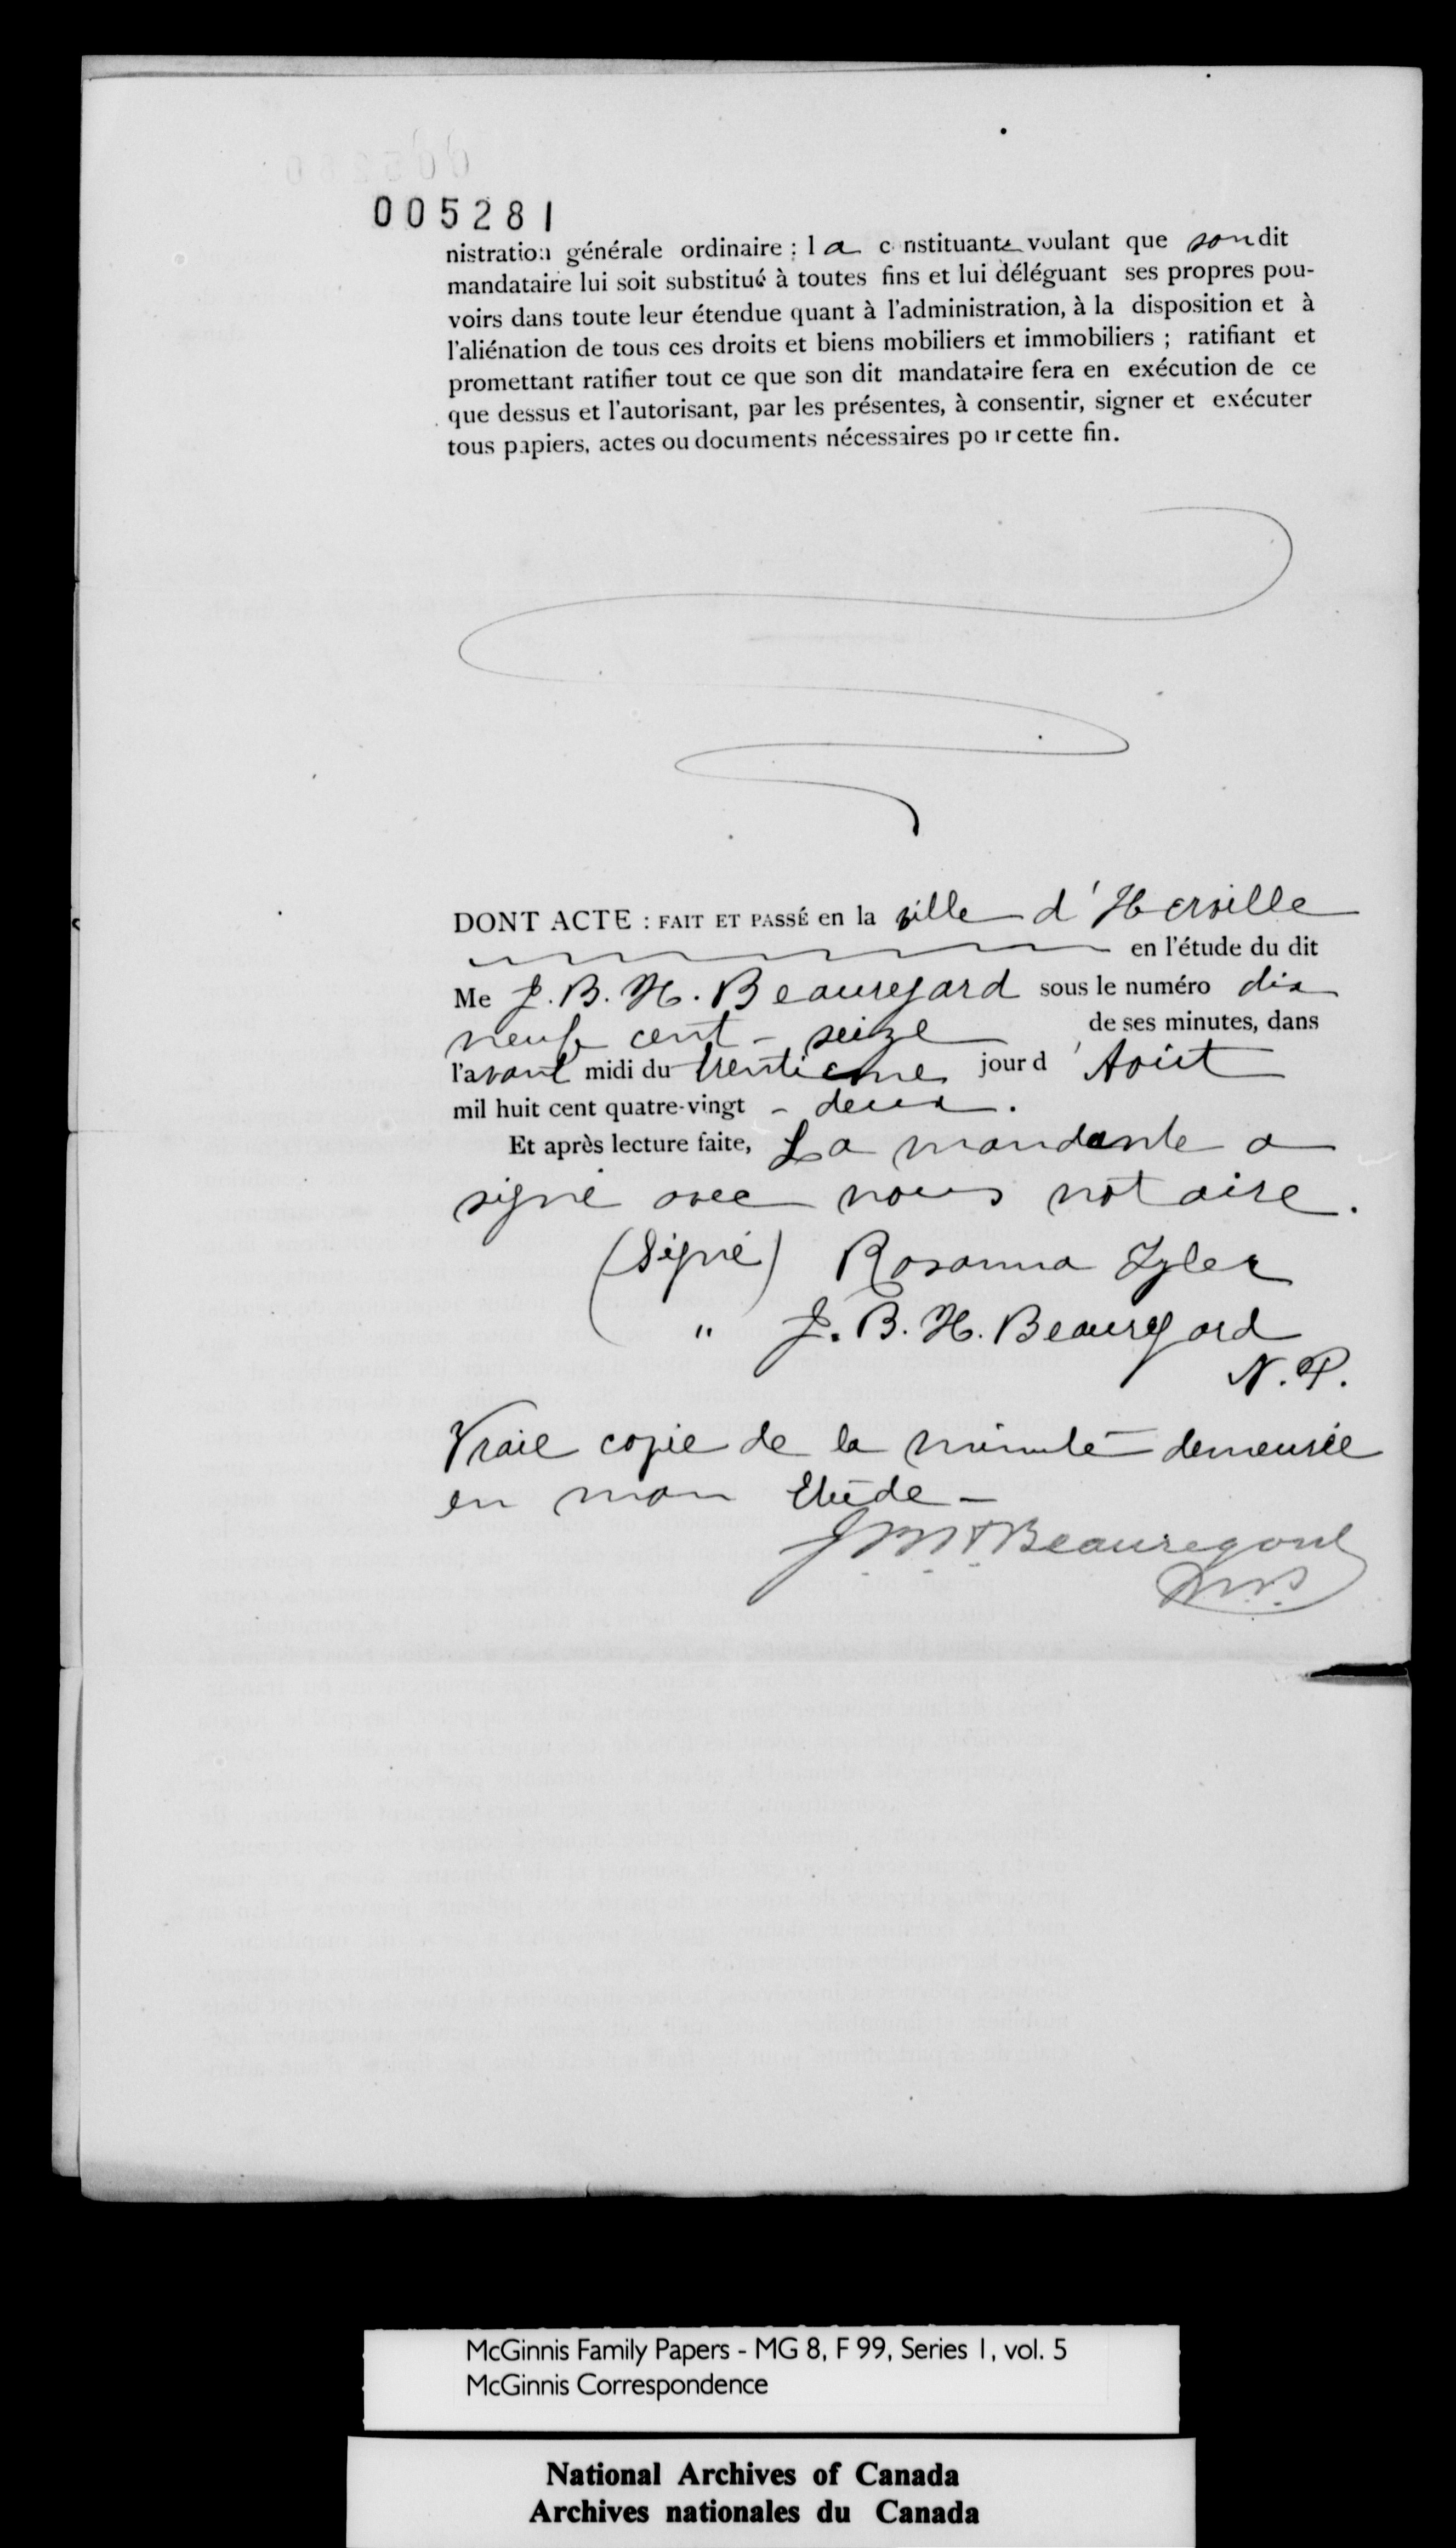 005281
nistration générale ordinaire : la constituante voulant que son dit
mandataire lui soit substitué à toutes fins et lui déléguant ses propres pou-
voirs dans toute leur étendue quant à l'administration, à la disposition et à
l'aliénation de tous ces droits et biens mobiliers et immobiliers ; ratifiant et
promettant ratifier tout ce que son dit mandataire fera en exécution de ce
que dessus et l'autorisant, par les présentes, à consentir, signer et exécuter
tous papiers, actes ou documents nécessaires pour cette fin.
DONT ACTE : FAIT ET PASSÉ en la ville d'Iberville
en l'étude du dit
Me J. B. H. Beauregard sous le numéro dix
neuf cent - seize de ses minutes, dans
l'avant midi du trentieme jour d'Août
mil huit cent quatre-vingt - deux.
Et après lecture faite, La mandante a
signé avec nous notaire.
(Signé) Rosanna Tyler
" J. B. H. Beauregard
N. P.
Vraie copie de la minute demeurée
en mon Etude -
J B H Beauregard
McGinnis Family Papers - MG 8, F 99, Series 1, vol. 5
McGinnis Correspondence
National Archives of Canada
Archives nationales du Canada